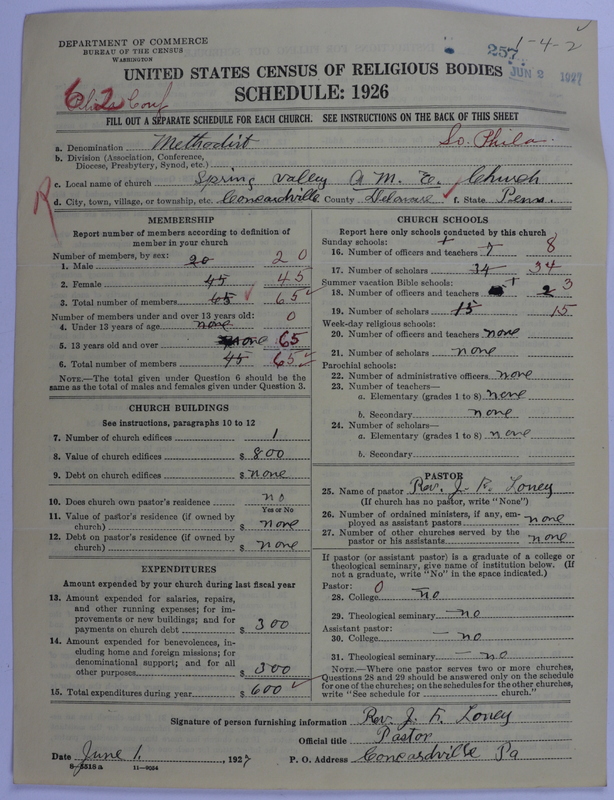 DEPARTMENT OF COMMERCE
BUREAU OF THE CENSUS
WASHINGTON
1-4-2
257
JUN 2 1927
UNITED STATES CENSUS OF RELIGIOUS BODIES
SCHEDULE: 1926
62 Conf
FILL OUT A SEPARATE SCHEDULE FOR EACH CHURCH. SEE INSTRUCTIONS ON THE BACK OF THIS SHEET
a. Denomination Methodist So. Phila.
b. Division (Association, Conference, Diocese, Presbytery, Synod, etc.)
c. Local name of church Spring Valley A. M. E. Church
d. City, town, village, or township, etc. Concordville County Delaware f. State Penn.
MEMBERSHIP
Report number of members according to definition of member in your church
Number of members, by sex:
1. Male 20 20
2. Female 45 45
3. Total number of members 65 65
Number of members under and over 13 years old:
4. Under 13 years of age none 0
5. 13 years old and over none 65
6. Total number of members 45 65
NOTE.—The total given under Question 6 should be the same as the total of males and females given under Question 3.
CHURCH BUILDINGS
See instructions, paragraphs 10 to 12
7. Number of church edifices 1
8. Value of church edifices $ 800
9. Debt on church edifices $ none
10. Does church own pastor's residence no
Yes or No
11. Value of pastor's residence (if owned by church) $ none
12. Debt on pastor's residence (if owned by church) $ none
EXPENDITURES
Amount expended by your church during last fiscal year
13. Amount expended for salaries, repairs, and other running expenses; for improvements or new buildings; and for payments on church debt $ 300
14. Amount expended for benevolences, including home and foreign missions; for denominational support; and for all other purposes $ 300
15. Total expenditures during year $ 600
CHURCH SCHOOLS
Report here only schools conducted by this church
Sunday schools:
16. Number of officers and teachers 7 8
17. Number of scholars 34 34
Summer vacation Bible schools:
18. Number of officers and teachers 2 3
19. Number of scholars 15 15
Week-day religious schools:
20. Number of officers and teachers none
21. Number of scholars none
Parochial schools:
22. Number of administrative officers none
23. Number of teachers—
a. Elementary (grades 1 to 8) none
b. Secondary none
24. Number of scholars—
a. Elementary (grades 1 to 8) none
b. Secondary
PASTOR
25. Name of pastor Rev. J. F. Loney
(If church has no pastor, write "None")
26. Number of ordained ministers, if any, employed as assistant pastors none
27. Number of other churches served by the pastor or his assistants none
If pastor (or assistant pastor) is a graduate of a college or theological seminary, give name of institution below. (If not a graduate, write "No" in the space indicated.)
Pastor: 0
28. College no
29. Theological seminary no
Assistant pastor:
30. College no
31. Theological seminary no
NOTE.—Where one pastor serves two or more churches, Questions 28 and 29 should be answered only on the schedule for one of the churches; on the schedules for the other churches, write "See schedule for church."
Signature of person furnishing information Rev. J. F. Loney
Official title Pastor
Date June 1, 1927 P. O. Address Concordville Pa
8-5318 a 11-9034